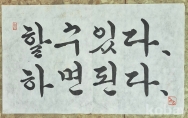 할수있다、
하면된다、